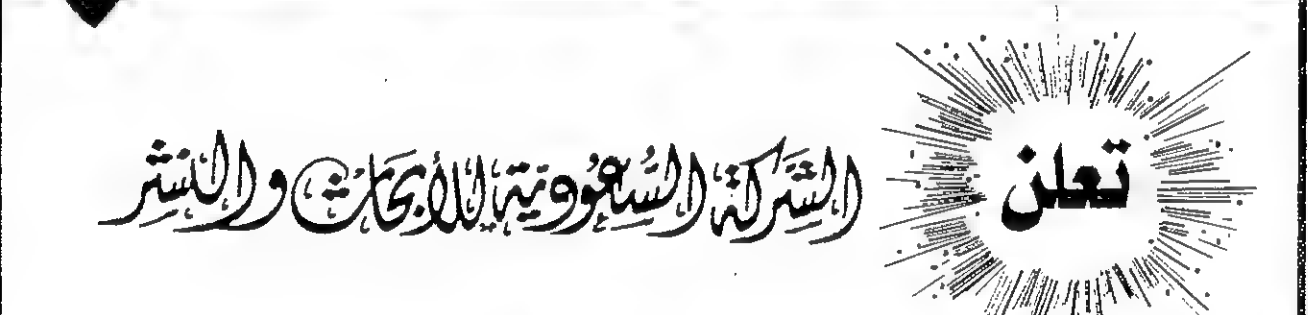 تعلن
الشركة السعودية للأبحاث والنشر